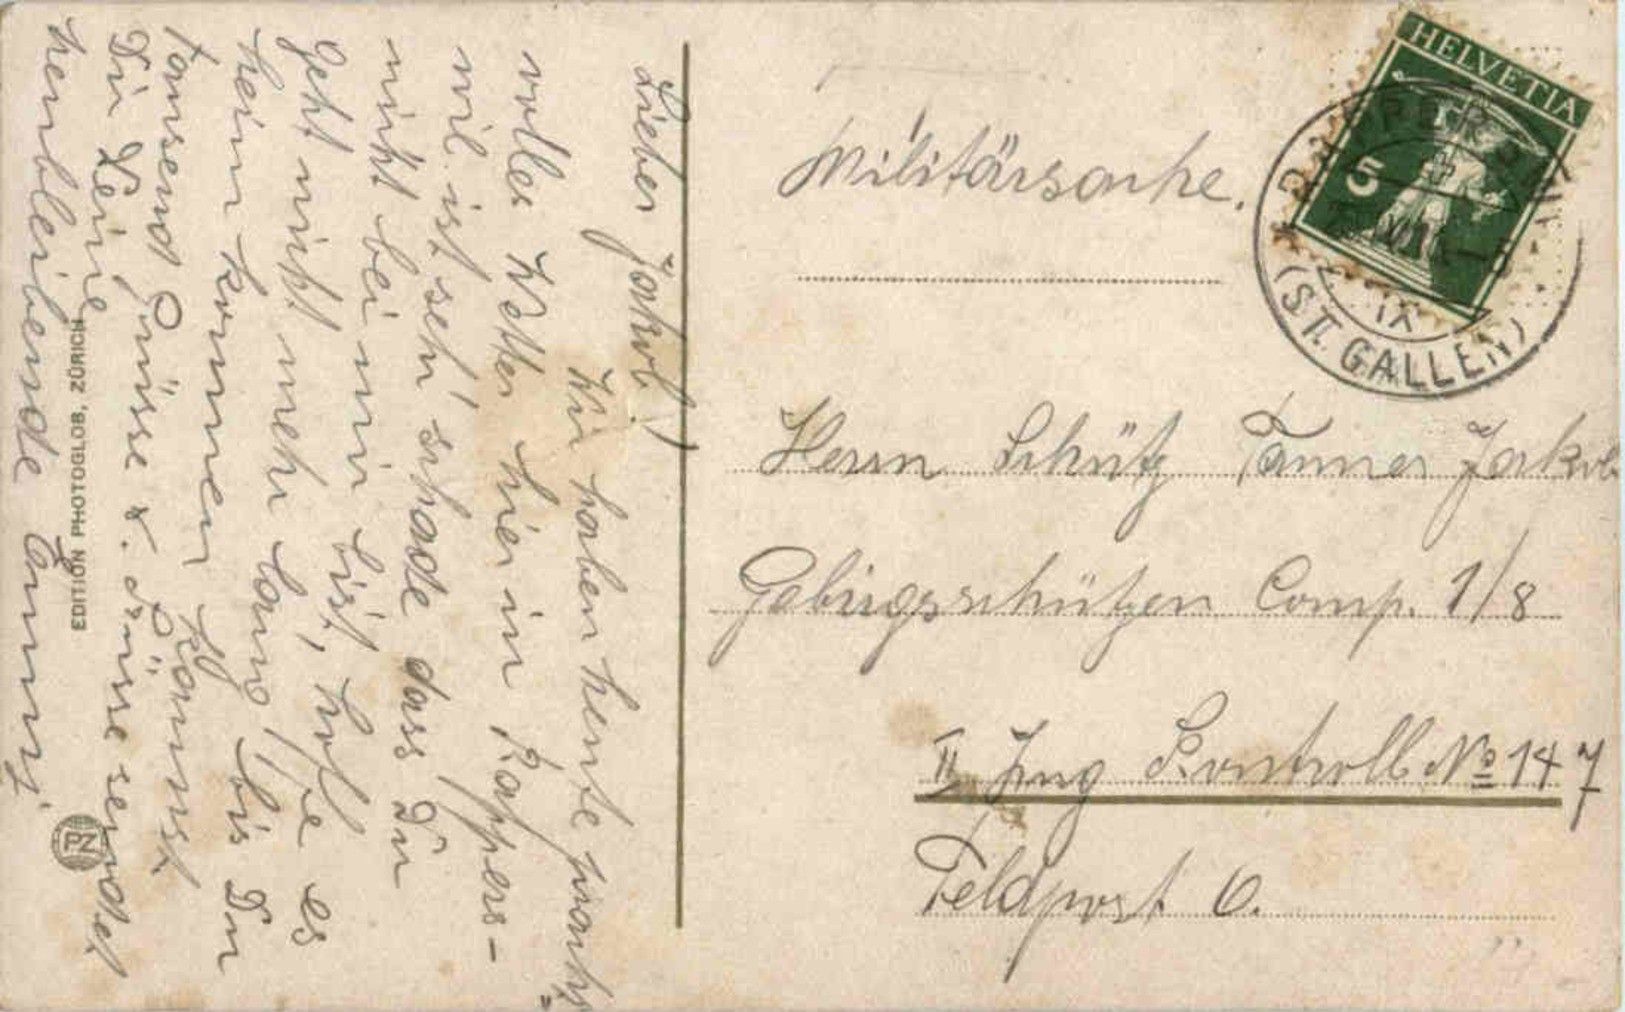 Lieber Jakob!
Wir haben heute pracht=
volles Wetter hier in Rappers-
wil. ist sehr schade dass Du
nicht bei mir bist, hoffe es
geht nicht mehr lang bis Du
heim kommen kannst.
tausend Grüsse u. Küsse sendet
Dir Deine
heimbleibende Emmy
EDITION PHOTOGLOB, ZÜRICH
PZ
Militärsache.
HELVETIA
5
(ST. GALLEN)
IX
Herrn Schütz Tanner Jakob
Gebirgsschützen Comp. 1/8
II Zug Kontroll No 147
Feldpost 6.